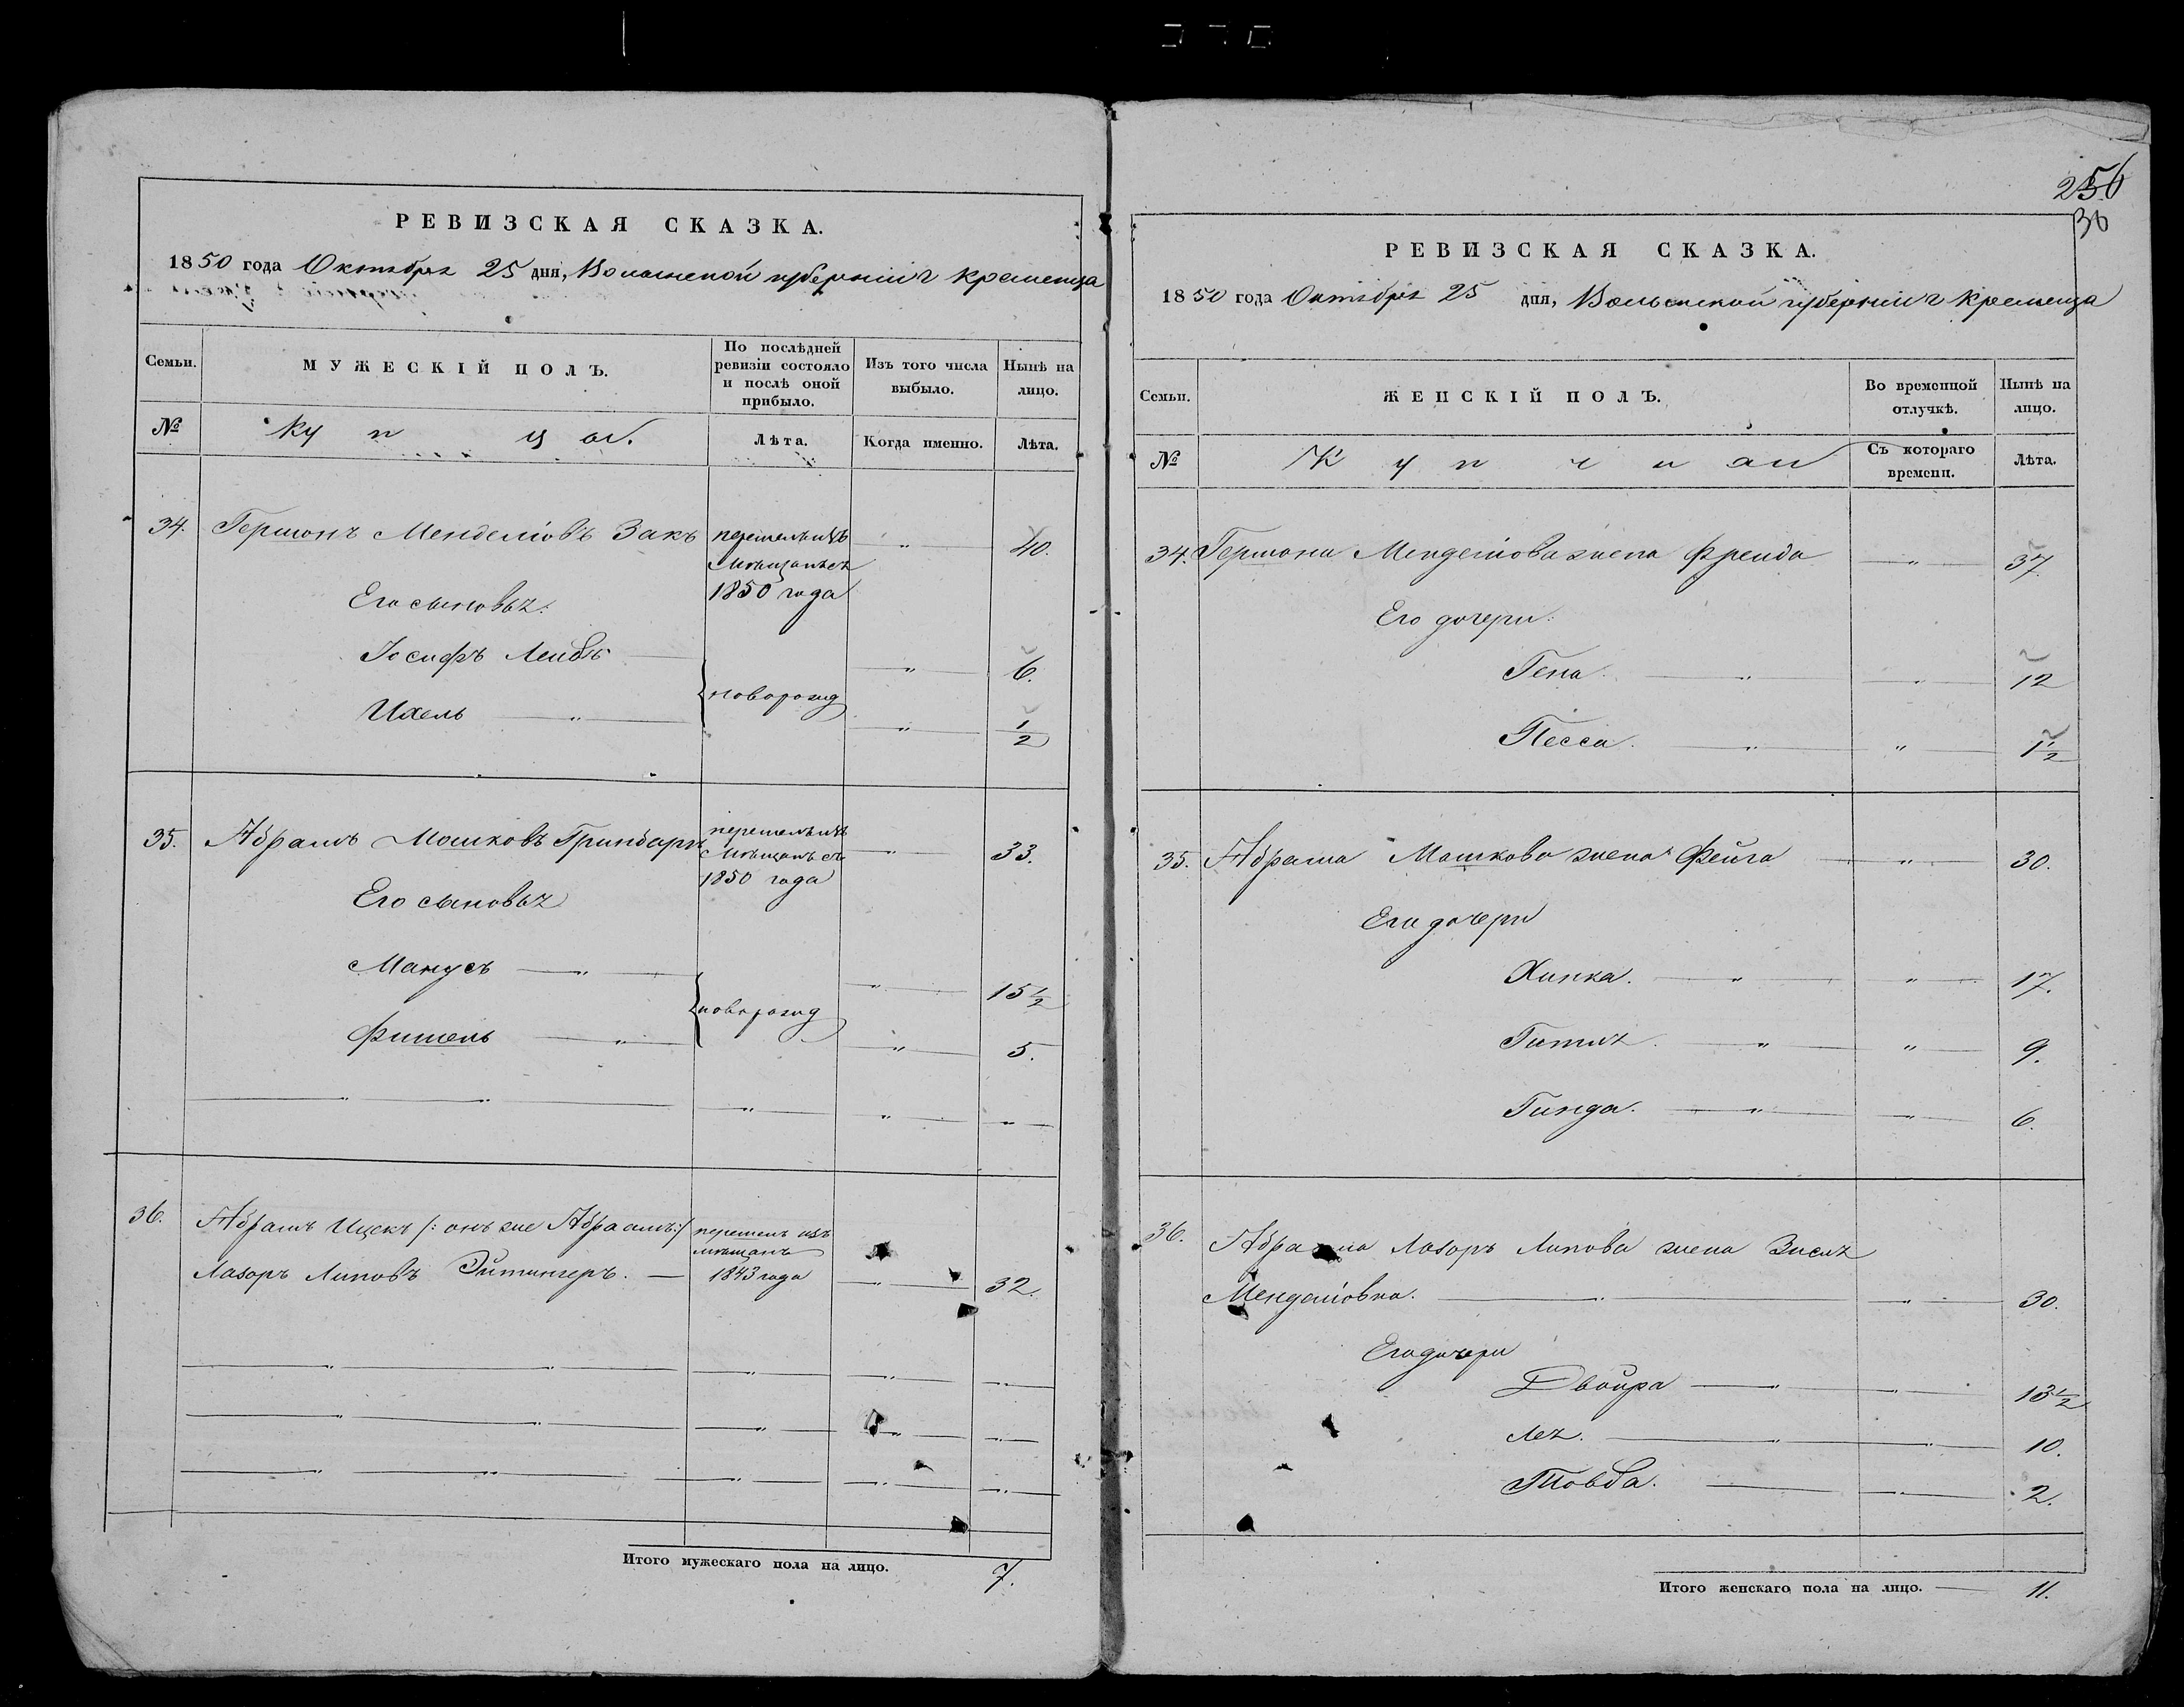 РЕВИЗСКАЯ СКАЗКА.
1850 года Октября 25 дня, Волынской губерніи г Кременца
Семьи. МУЖЕСКІЙ ПОЛЪ. По послѣдней ревизіи состояло и послѣ оной прибыло. Изъ того числа выбыло. Нынѣ на лицо.
№ Купцы. Лѣта. Когда именно. Лѣта.
34. Гершонъ Менделіовъ Закъ перешелъ изъ „ 40.
Мѣщанъ съ
Его сыновья: 1850 года
Іосифъ Лейбъ „ 6.
новорожд
Ихель „ „ 1/2
35. Абрамъ Мошковъ Гринбаргъ перешелъ изъ „ 33.
Мѣщанъ съ
1850 года
Его сыновья
Манусъ „ „ 15 1/2
новорожд
Фишель „ „ 5.
„ „ „ „ „
36. Абрамъ Ицекъ /: онъ же Абраамъ :/ перешелъ изъ
мѣщанъ
Лазоръ Липовъ Эйтингеръ. 1843 года „ 32.
„ „ „ „ „
„ „ „ „ „
„ „ „ „ „
Итого мужескаго пола на лицо. 7.
256
36
РЕВИЗСКАЯ СКАЗКА.
1850 года Октября 25 дня, Волынской губерніи г Кременца
Семьи. ЖЕНСКІЙ ПОЛЪ. Во временной отлучкѣ. Нынѣ на лицо.
№ Съ котораго времени. Лѣта.
34. Гершона Менделіова жена Фрейда „ 37.
Его дочери:
Гена. „ „ 12
Песса. „ „ 1 1/2
35. Абрама Мошкова жена Фейга „ 30.
Его дочери
Хинка. „ „ 17.
Гитля. „ „ 9.
Гинда. „ „ 6.
36. Абрама Лазоръ Липова жена Зися
Менделіовна. „ „ 30.
Его дочери
Двойра „ „ 13 1/2
Лея. „ „ 10.
Товба. „ 2.
Итого женскаго пола на лицо. 11.